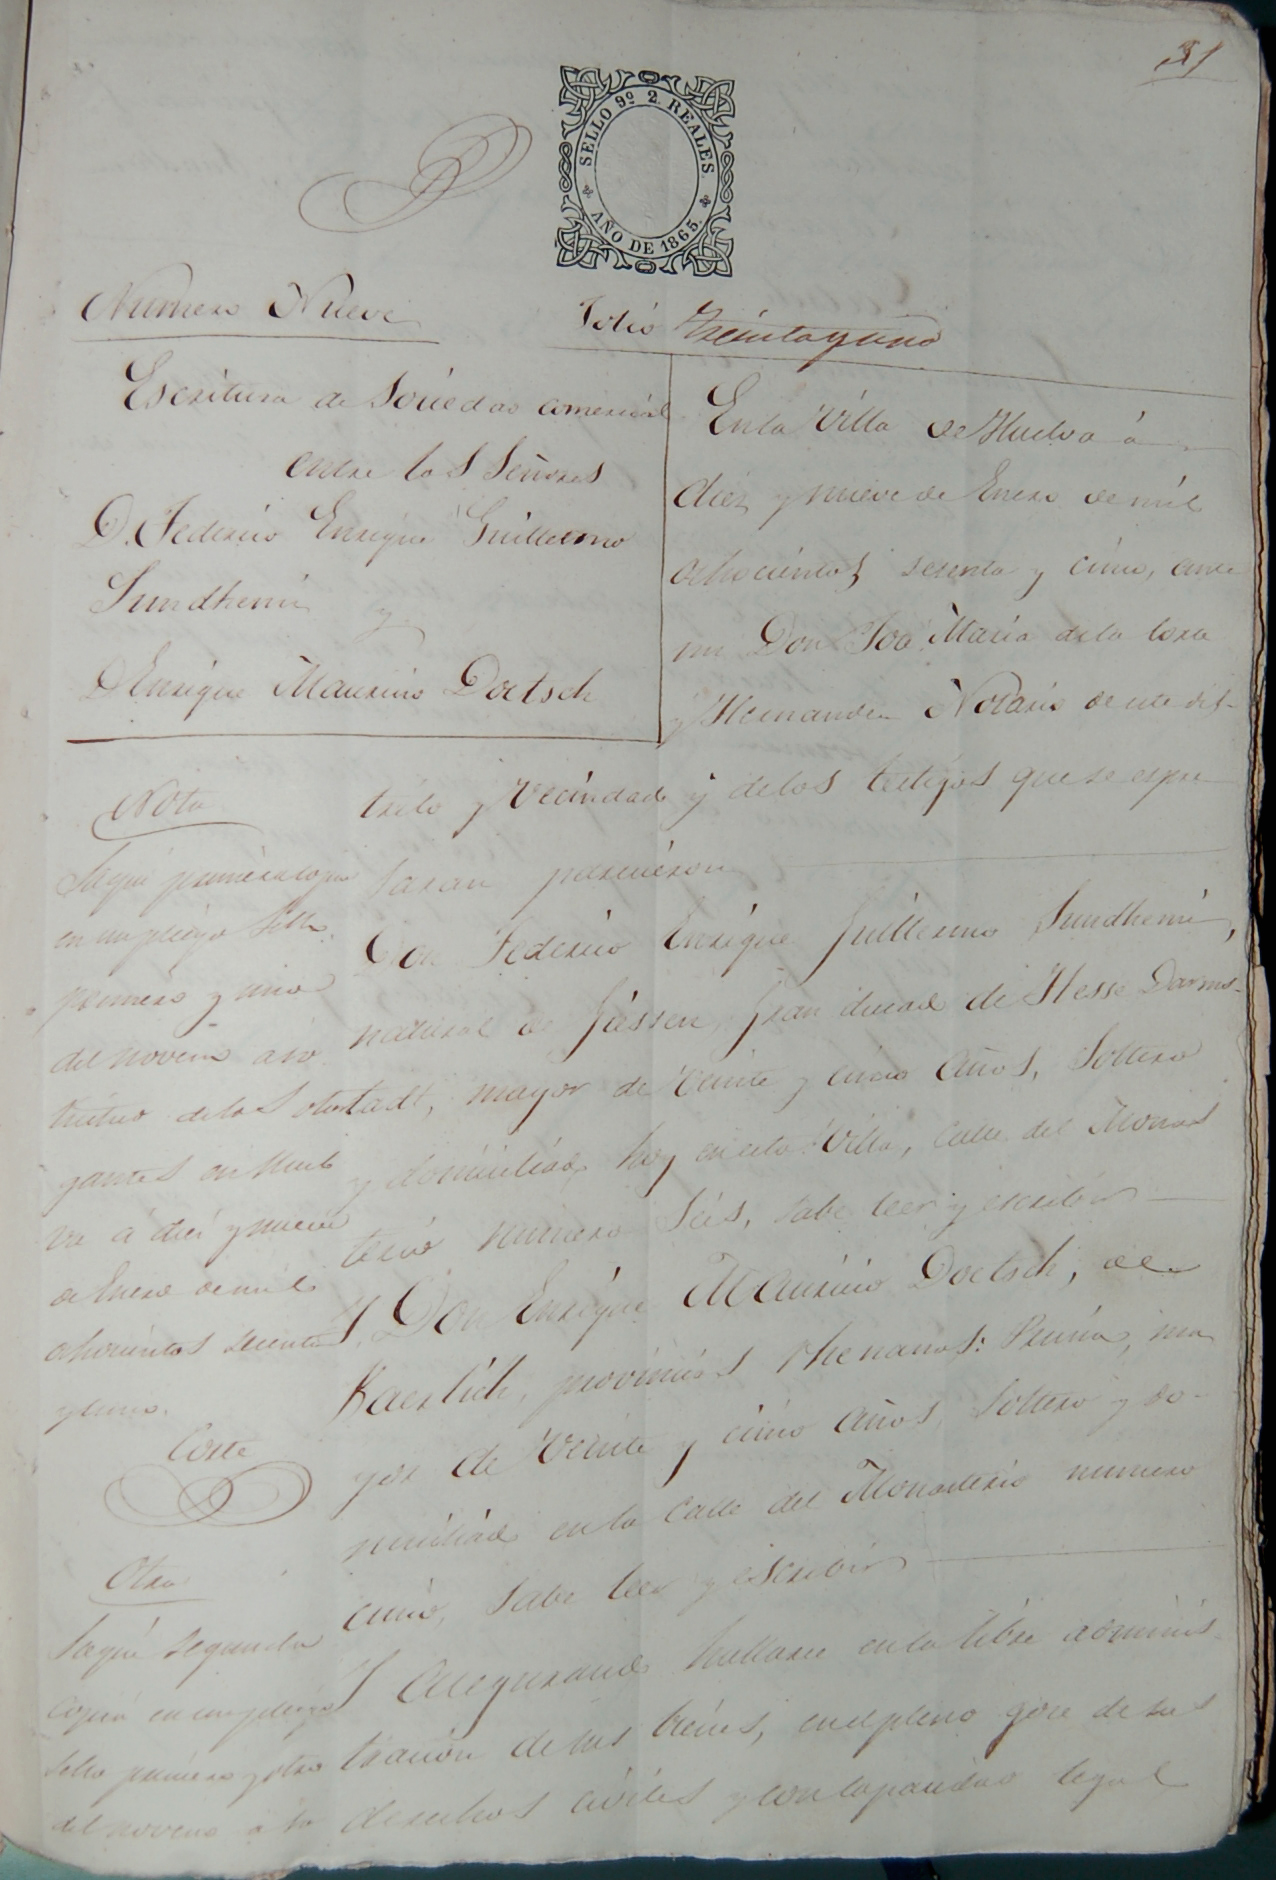 31
SELLO 9º 2. REALES.
AÑO DE 1865.
Numero Nueve
Folio treinta y uno
Escritura de Sociedad comercial
entre los Señores
D. Federico Enrique Guillermo
Sundhenin
y
D Enrique Mauricio Doetsch
En la Villa de Huelva á
diez y nueve de Enero de mil
ochocientos sesenta y cinco, ante
mi Don José Maria de la Corte
y Hernandez Notario de este dis-
trito y Vecindad y de los testigos que se espre
saran parecieron
Don Federico Enrique Guillermo Sundhenin,
natural de Giessen, Gran ducado de Hesse Darms-
tadt, mayor de veinte y cinco años, Soltero
y domiciliado hoy en esta Villa, Calle del Monas
terio numero Seis, sabe leer y escribir
Y Don Enrique Mauricio Doetsch, de
Kaerlich, provincias Rhenanas: Prusia, ma
yor de Veinte y cinco años, Soltero y do-
miciliado en la Calle del Monasterio numero
cinco, Sabe leer y escribir
Y asegurando hallarse en la libre adminis-
tracion de sus bienes, en el pleno goce de sus
derechos civiles y con la capacidad legal
Nota
Saqué primera copia
en un pliego Sello
primero y uno
del noveno a ins
tancia de los otor
gantes en Huel
va á diez y nueve
de Enero de mil
ochocientos sesenta
y cinco.
Corte
Otra
Saqué segunda
copia en un pliego
Sello primero y otro
del noveno a la